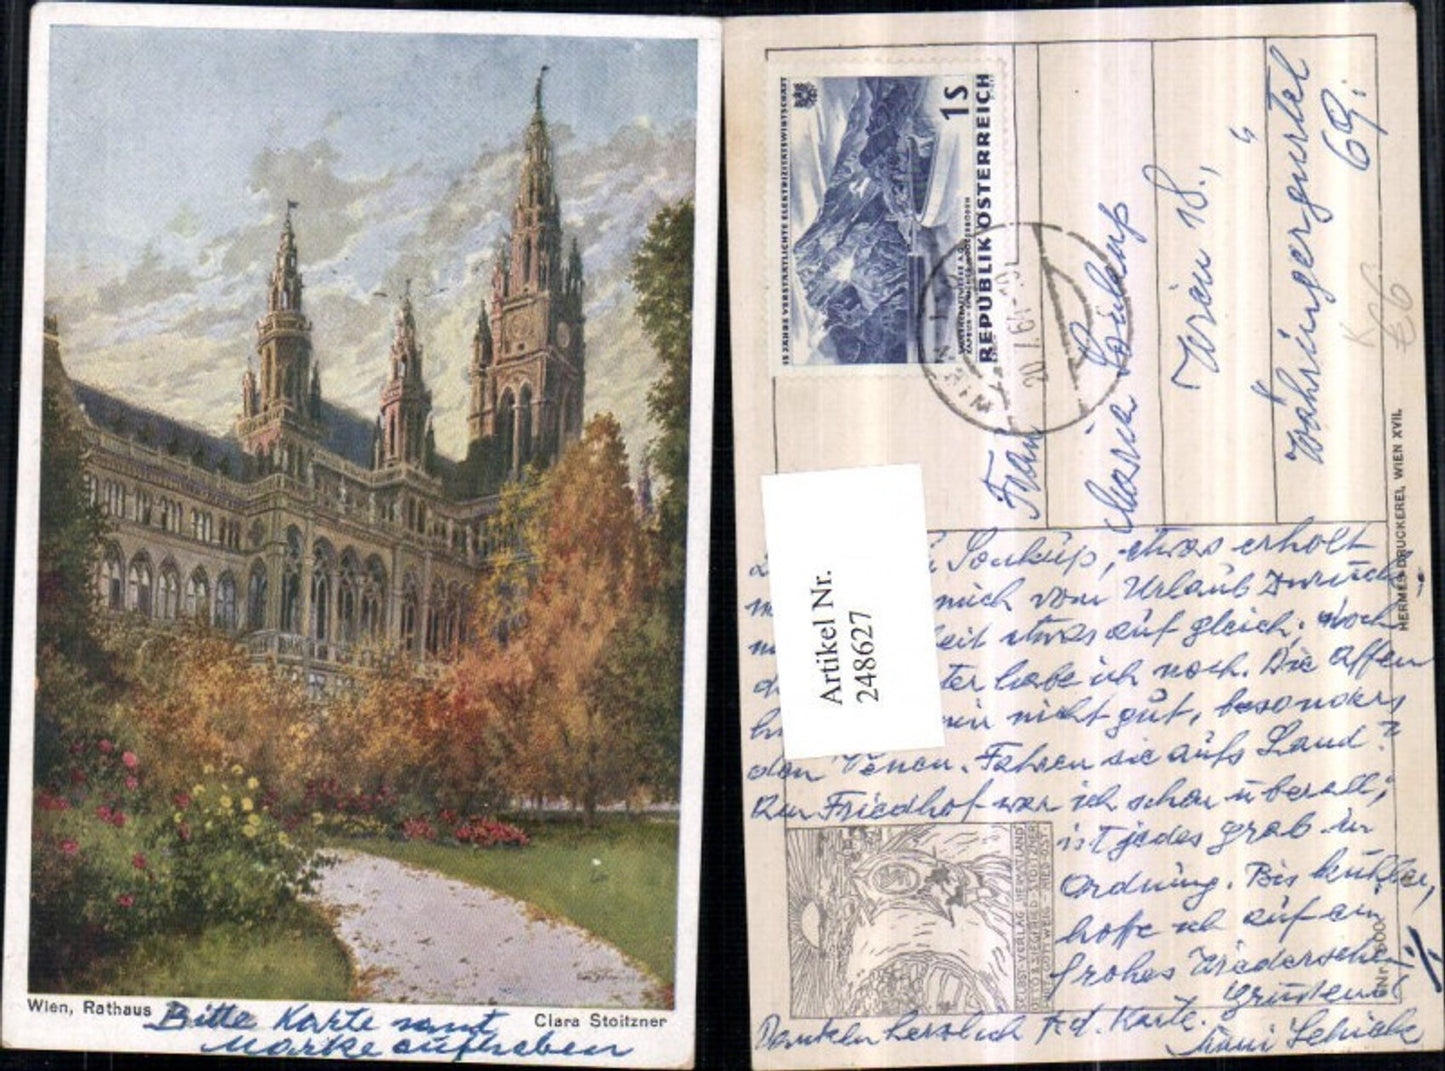 Wien, Rathaus
Clara Stoitzner
Bitte Karte samt
Marke aufheben
15 JAHRE VERSTAATLICHTE ELEKTRIZITÄTSWIRTSCHAFT
REPUBLIK ÖSTERREICH
1S
20.7.64
Frau
Maria Soukup
Wien 18.,
Währingergürtel
69
K
£6
HERMES-DRUCKEREI, WIEN XVII.
Artikel Nr.
248627
Soukup, etwas erholt
mich vom Urlaub zurück
etwas auf gleich; noch
habe ich noch. Die Affen
mir nicht gut, besonders
den Venen. Fahren sie aufs Land?
Am Friedhof war ich schon überall;
ist jedes Grab in
Ordnung. Bis kühler,
hoffe ich auf ein
frohes Wiedersehen
Danke herzlich f. d. Karte.
SELBST-VERLAG HEIMATLAND
OTTO & SIEGFRIED STOITZNER